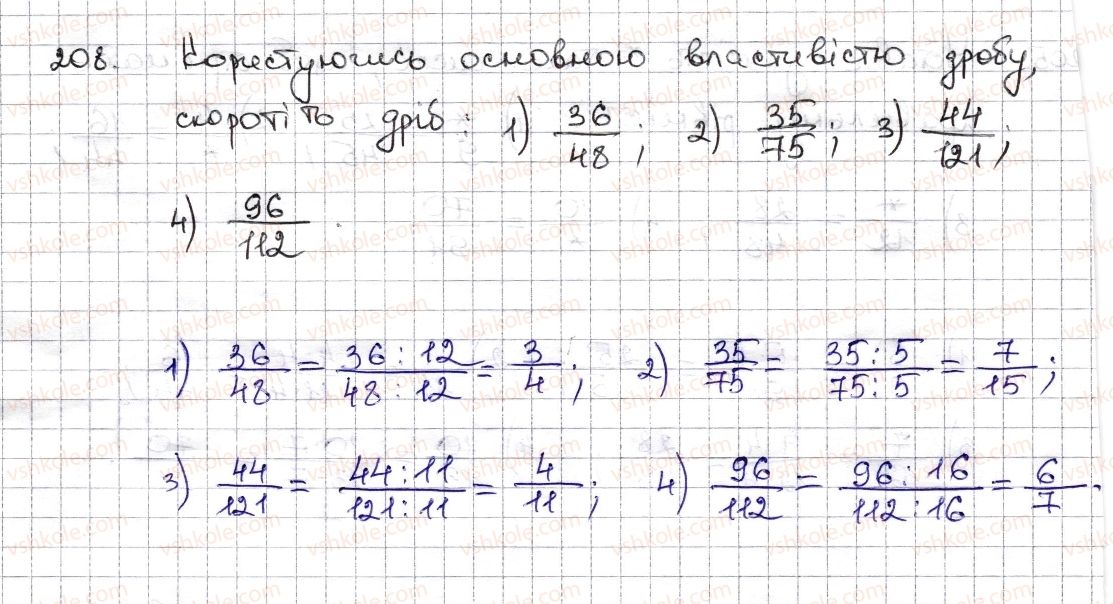 208. Користуючись основною властивістю дробу,
скоротіть дріб: 1) 36/48; 2) 35/75; 3) 44/121;
4) 96/112.
1) 36/48 = 36:12/48:12 = 3/4; 2) 35/75 = 35:5/75:5 = 7/15;
3) 44/121 = 44:11/121:11 = 4/11; 4) 96/112 = 96:16/112:16 = 6/7.